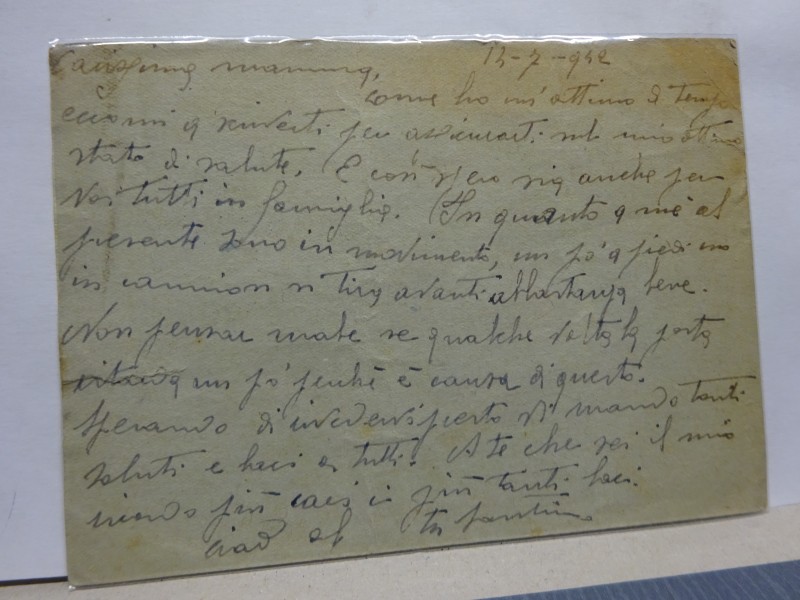 Carissima mamma, 13-7-942
come ho un'attimo di tempo
eccomi a scriverti per assicurarti sul mio ottimo
stato di salute. E così spero sia anche per
voi tutti in famiglia. In quanto a me al
presente sono in movimento, un po' a piedi un
in camion si tira avanti abbastanza bene.
Non pensar male se qualche volta la posta
ritarda un po' perché è causa di questo.
Sperando di rivedervi presto vi mando tanti
saluti e baci a tutti. A te che sei il mio
più cari i più tanti baci.
ciao al tuo